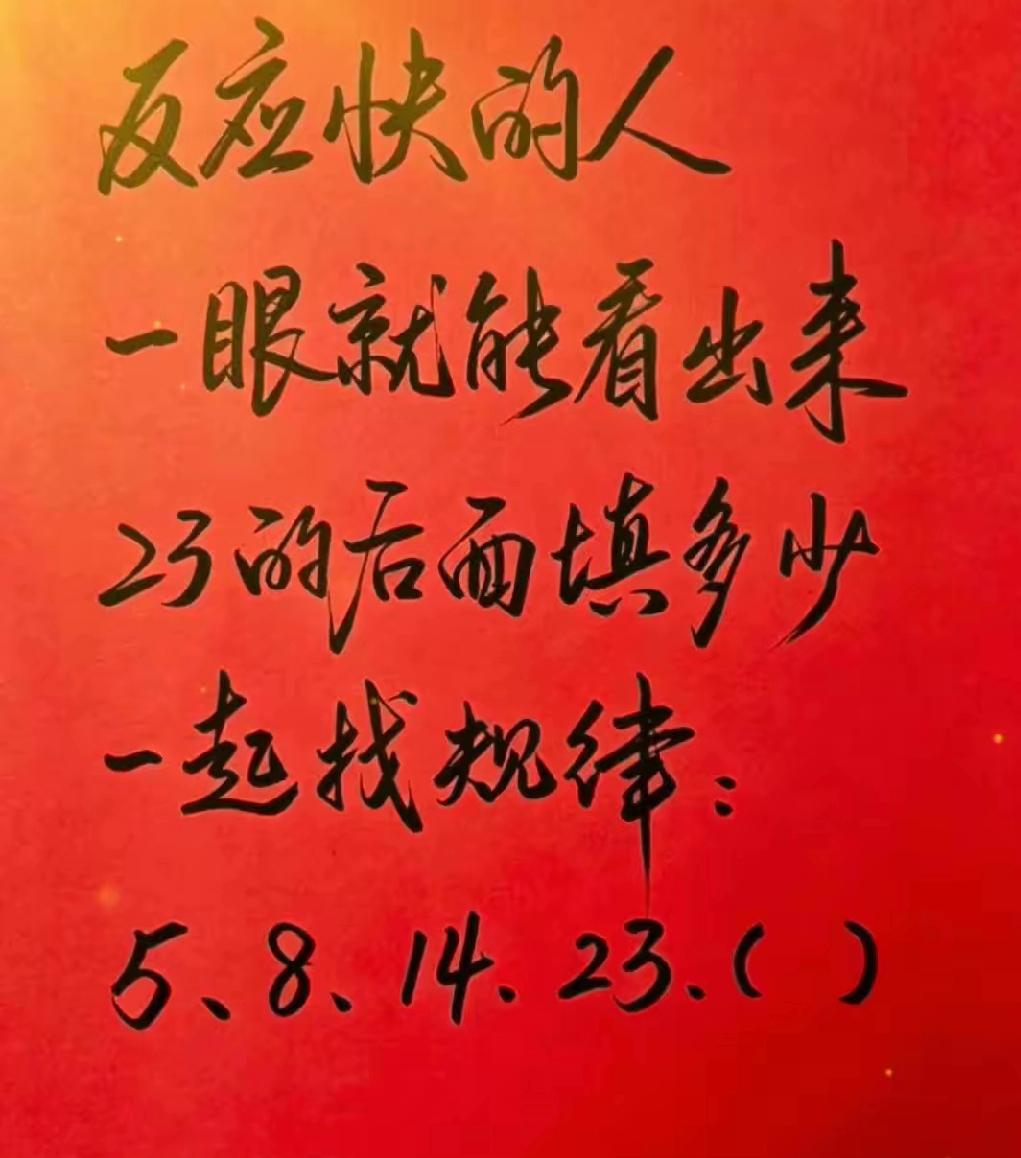 反应快的人
一眼就能看出来
23的后面填多少
一起找规律：
5、8、14、23、( )